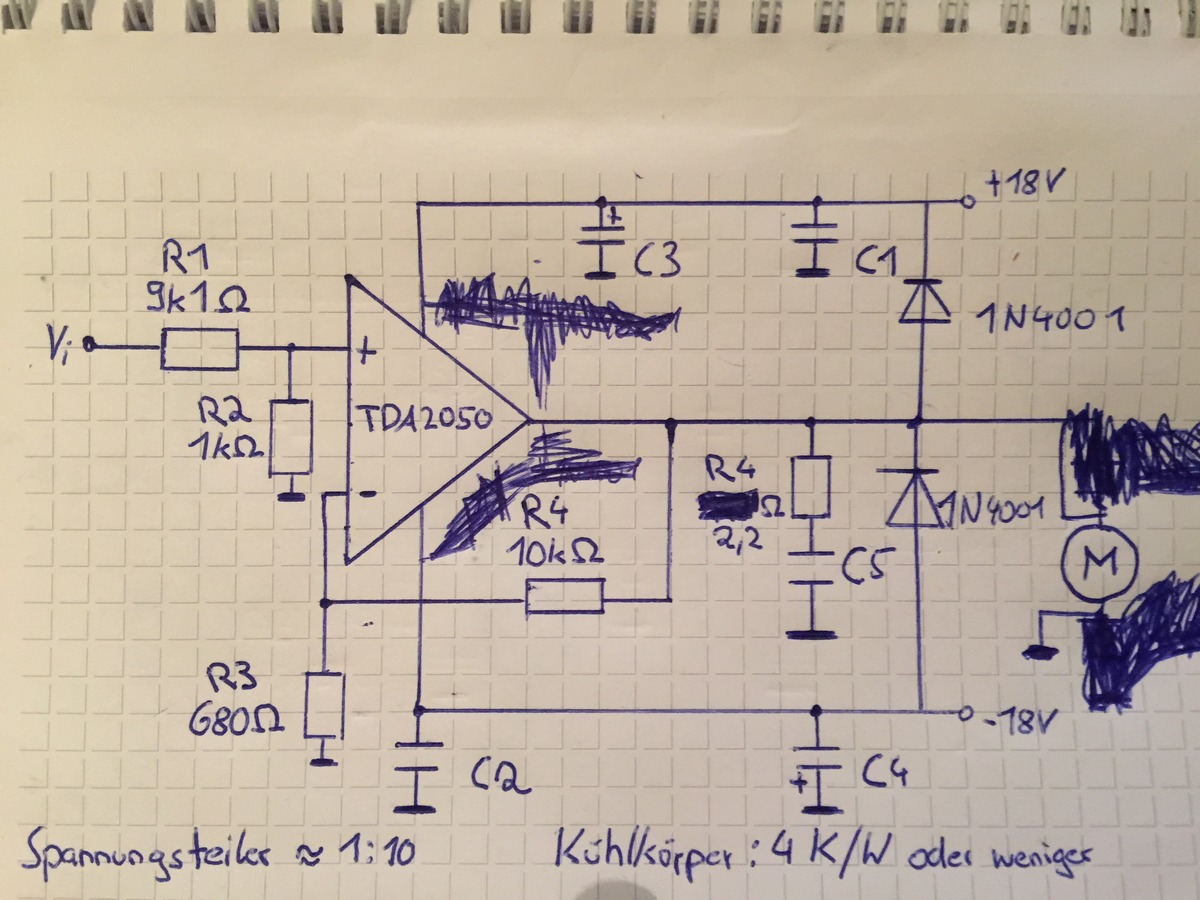 +18V
+
C3
C1
R1
9k1Ω
1N4001
Vi
+
R2
1kΩ
TDA2050
-
R4
10kΩ
R4
Ω
2,2
C5
1N4001
M
R3
680Ω
-18V
C2
+
C4
Spannungsteiler ≈ 1:10
Kühlkörper: 4 K/W oder weniger